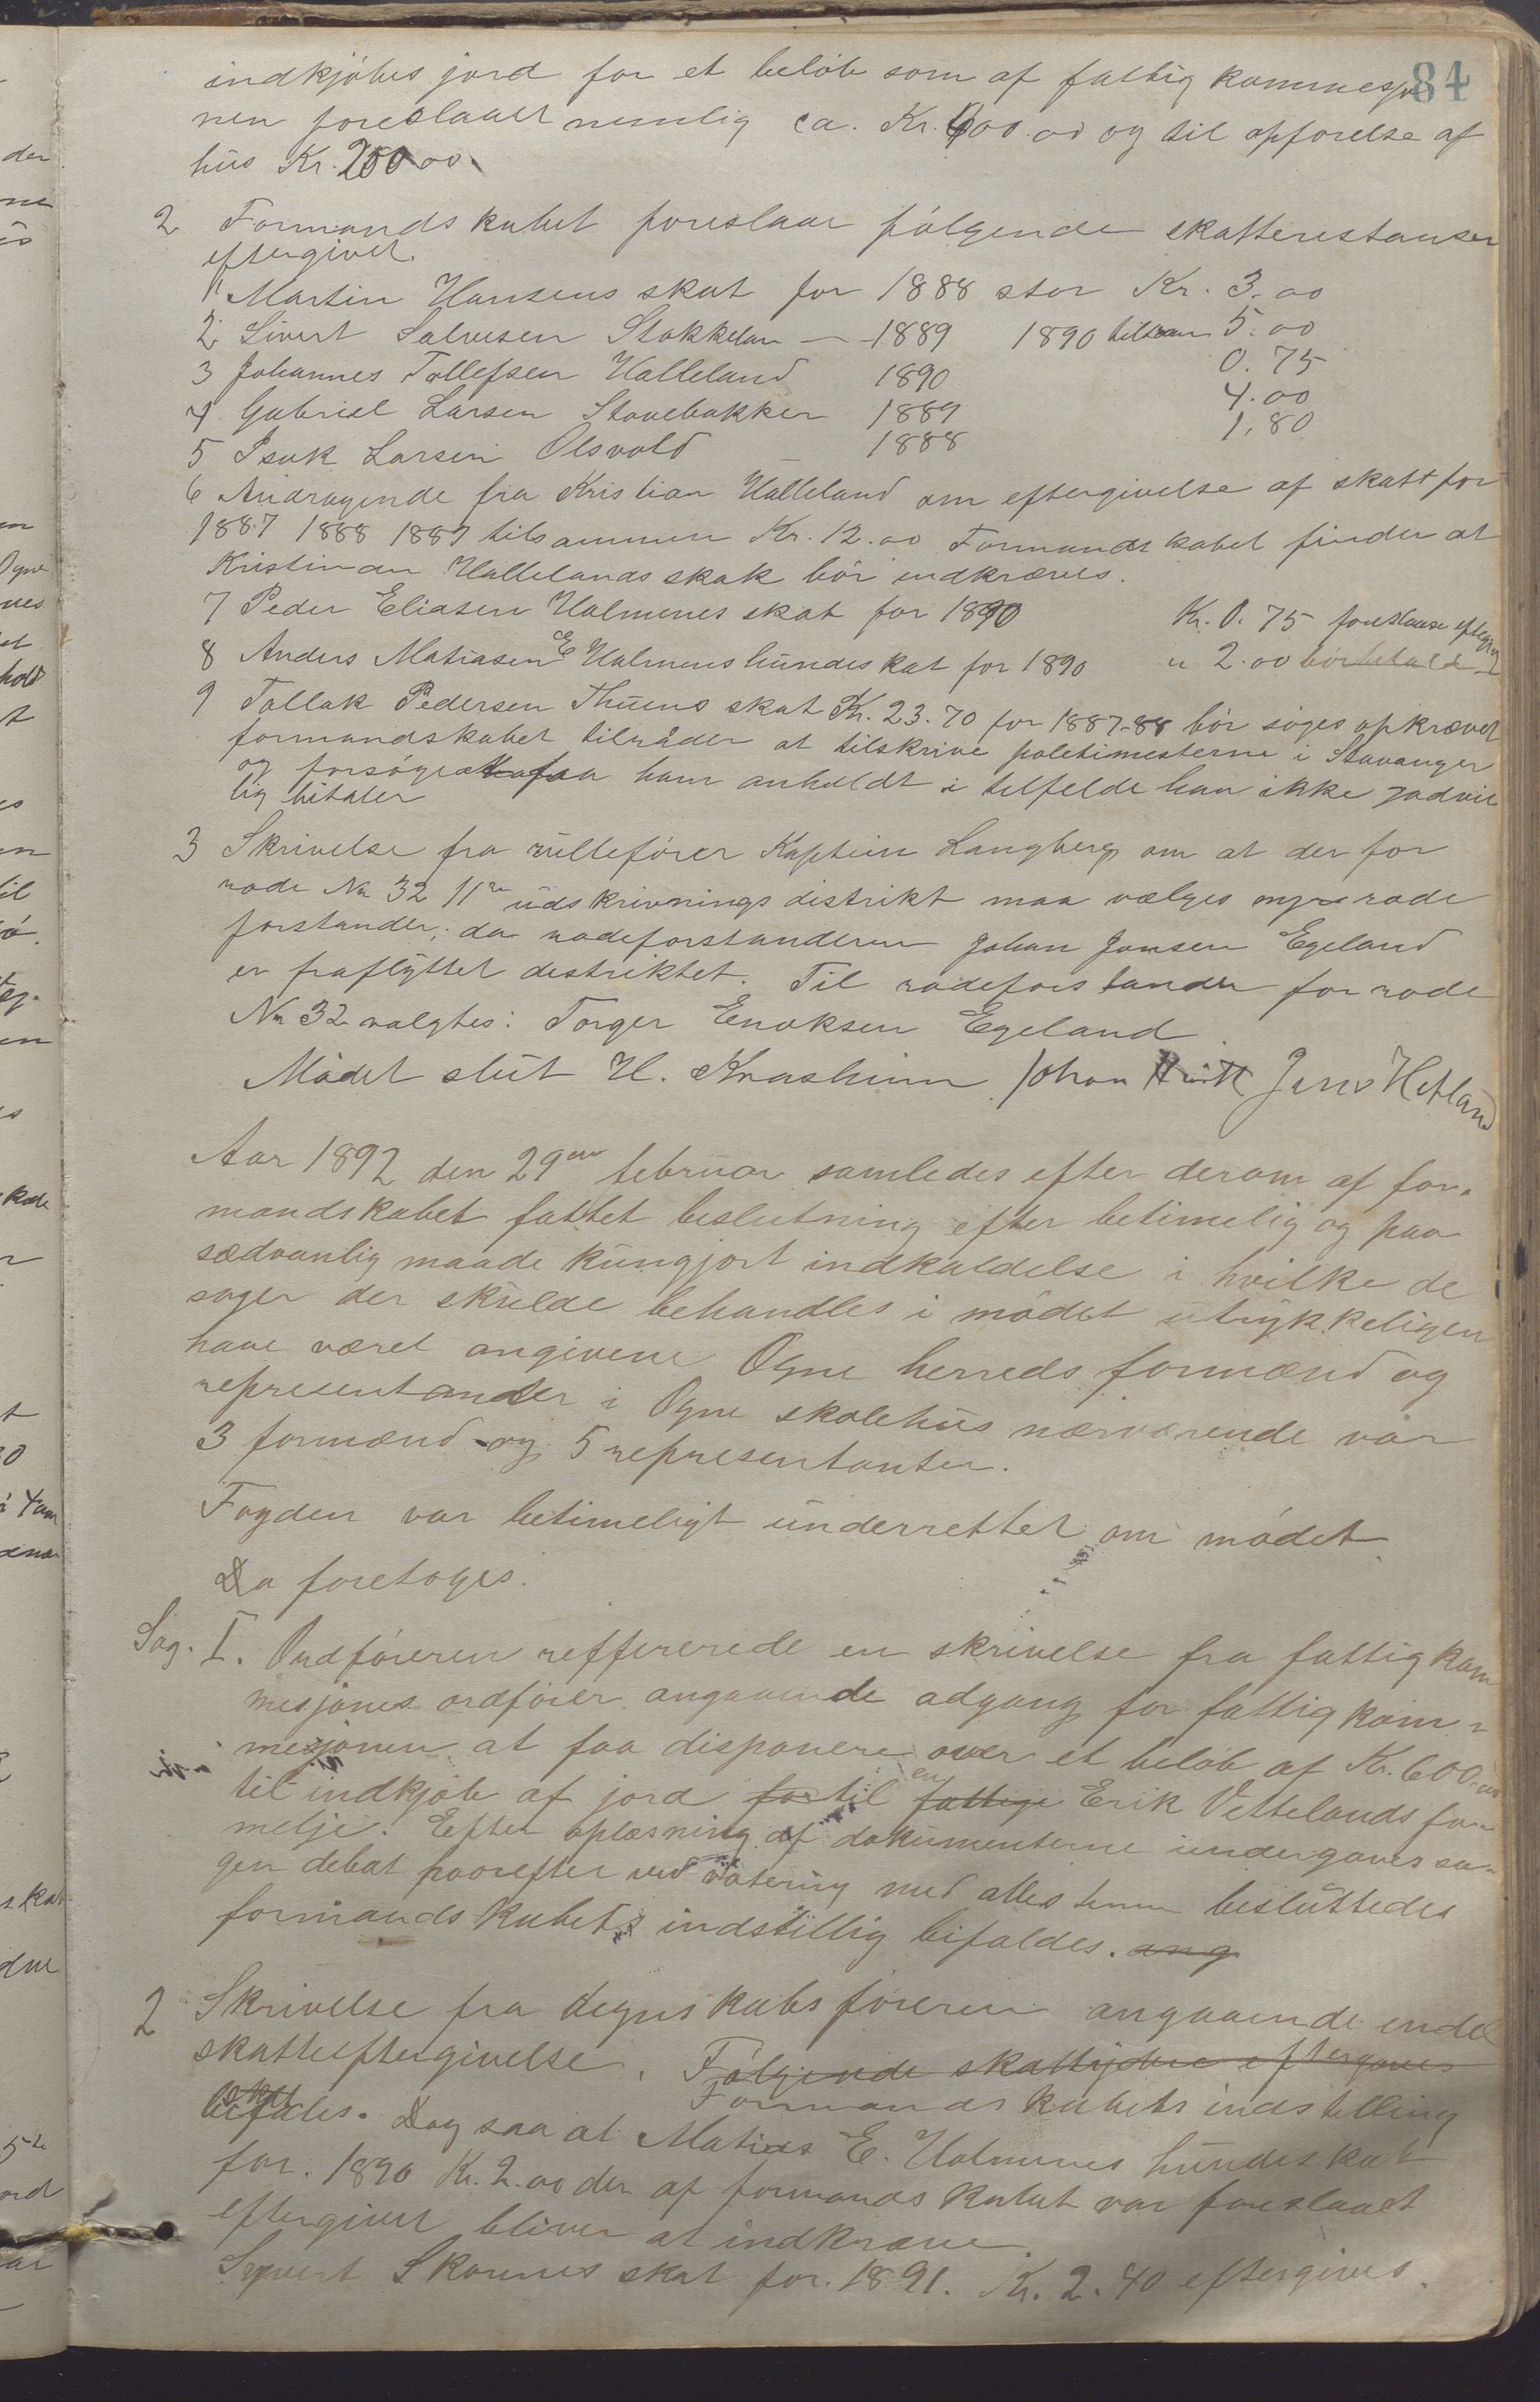 84
indkjøbes jord for et beløb som af fattig kommesjo
nen foreslaaet nemlig ca. Kr. 600.00 og til opførelse af
hus Kr. 200.00
2 Formandskabet foreslaar følgende skatterestanser
eftergivet.
1 Martin Hansens skat for 1888 stor Kr. 3.00
2 Sivert Salvesen Stokkelan — 1889 1890 tilsam 5.00
3 Johannes Tollefsen Halleland 1890 0.75
4 Gabriel Larsen Stavebakken 1889 4.00
5 Isak Larsen Olsvold 1888 1,80
6 Andragende fra Kristian Halleland om eftergivelse af skatt for
1887 1888 1889 tilsammen Kr. 12.00 Formandskabet finder at
Kristinan Hallelands skak bør indkræves.
7 Peder Eliasen Holmenes skat for 1890 Kr. 0.75 foreslaaes
8 Anders Matiasen E Holmenes hundeskat for 1890 " 2.00 bør betale
9 Tollak Pedersen Thuens skat Kr. 23.70 for 1887-88 bør søges opkrævet
formandskabet tilråder at tilskrive politimesterne i Stavanger
og forsøge at faa ham anholdt i tilfelde han ikke godvil
lig bitaler
3 Skrivelse fra rullefører Kaptein Langberg om at der for
rode No 32 11te udskrivnings distrikt maa vælges nye rode
forstander, da rodeforstanderen Johan Jonsen Egeland
er fraflyttet distriktet. Til rodeforstander for rode
No 32 valgtes: Torger Enoksen Egeland
Mødet slut H. Knashiem Johan Jens Hetland
Aar 1892 den 29de februar samledes efter derom af for-
mandskabet fattet beslutning efter betimelig og paa
sædvanlig maade kungjort indkaldelse i hvilke de
sager der skulde behandles i mødet utrykkeligen
have været angivene Ogne herreds formænd og
representander i Ogne skolehus nærværende var
3 formænd og 5 representanter.
Fogden var betimeligt underrettet om mødet
Da foretoges.
Sag. I. Ordføreren reffererede en skrivelse fra fattigkom
mesjones ordfører angaaende adgang for fattigkom-
mesjonen at faa disponere over et beløb af Kr. 600.00
til indkjøb af jord for til en fattige Erik Vettelands fa-
melje. Efter oplæsning af dokumenterne undergaves sa-
gen debat hvorefter ved votering med alles temm besluttedes
formandskabets indstillig bifaldes. ang
2 Skrivelse fra regnskabsføreren angaaende endel
skatteeftergivelse. Følgende skatteydere eftergaves
skat Formandskabets indstelling
bifales. Dog saa at Matias E. Holmenes hundeskat
for. 1890 Kr. 2.00 der af formandskabet var foreslaaet
eftergivet bliver at indkræve.
Syvert Skonnes skat for. 1891. Kr. 2.40 eftergives.